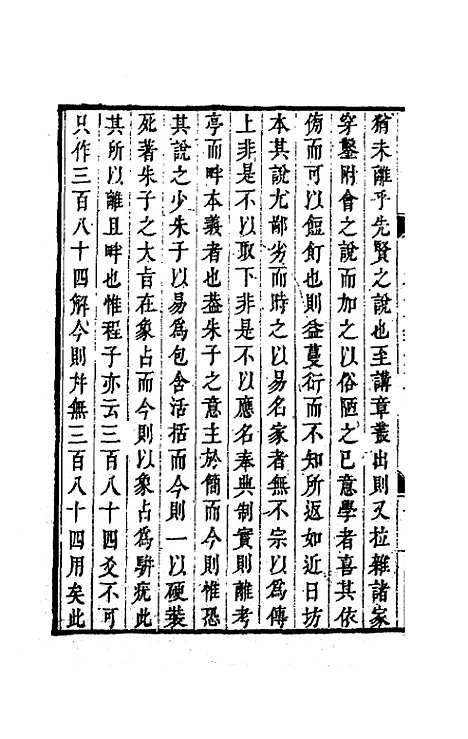 猶未離乎先賢之說也至講章叢出則又拉雜諸家
穿鑿附會之說而加之以俗陋之已意學者喜其依
傍而可以餖飣也則益蔓衍而不知所返如近日坊
本其說尤鄙劣而時之以易名家者無不宗以為傳
上非是不以取下非是不以應名奉典制實則離考
亭而畔本義者也葢朱子之意主於簡而今則惟恐
其說之少朱子以易為包含活括而今則一以硬裝
死著朱子之大旨在象占而今則以象占為駢疣此
其所以離且畔也惟程子亦云三百八十四爻不可
只作三百八十四解今則幷無三百八十四用矣此